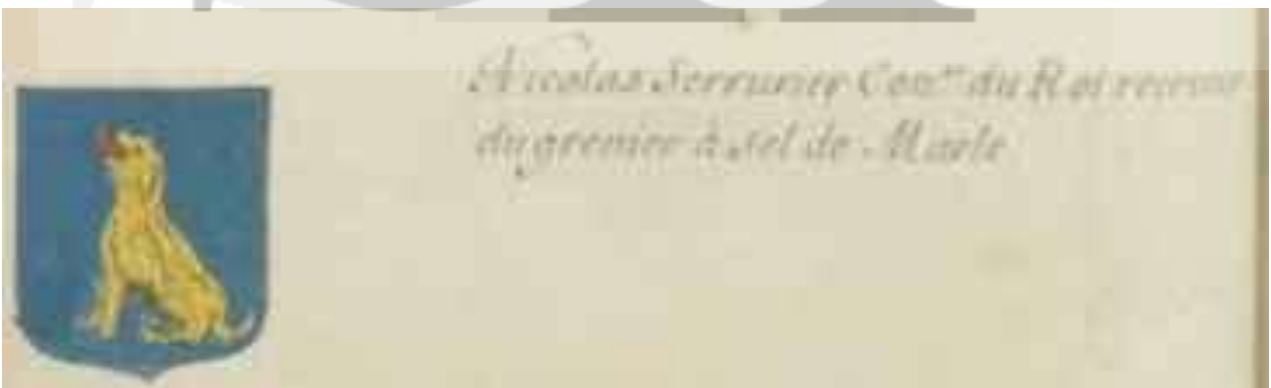 Nicolas Serrurier Con.er du Roi receveur
du grenier à sel de Marle